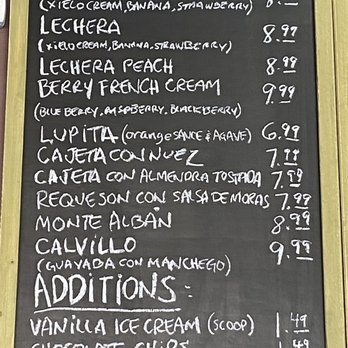 (XIELO CREAM, BANANA, STRAWBERRY)
LECHERA 8.99
(XIELO CREAM, BANANA, STRAWBERRY)
LECHERA PEACH 8.99
BERRY FRENCH CREAM 9.99
(BLUEBERRY, RASPBERRY, BLACKBERRY)
LUPITA (orange SAUCE & AGAVE) 6.99
CAJETA CON NUEZ 7.99
CAJETA CON ALMENDRA TOSTADA 7.99
REQUESON CON SALSA DE MORAS 7.99
MONTE ALBÁN 8.99
CALVILLO 9.99
(GUAYABA CON MANCHEGO)
ADDITIONS:
VANILLA ICE CREAM (SCOOP) 1.49
CHOCOLATE CHIPS 1.49